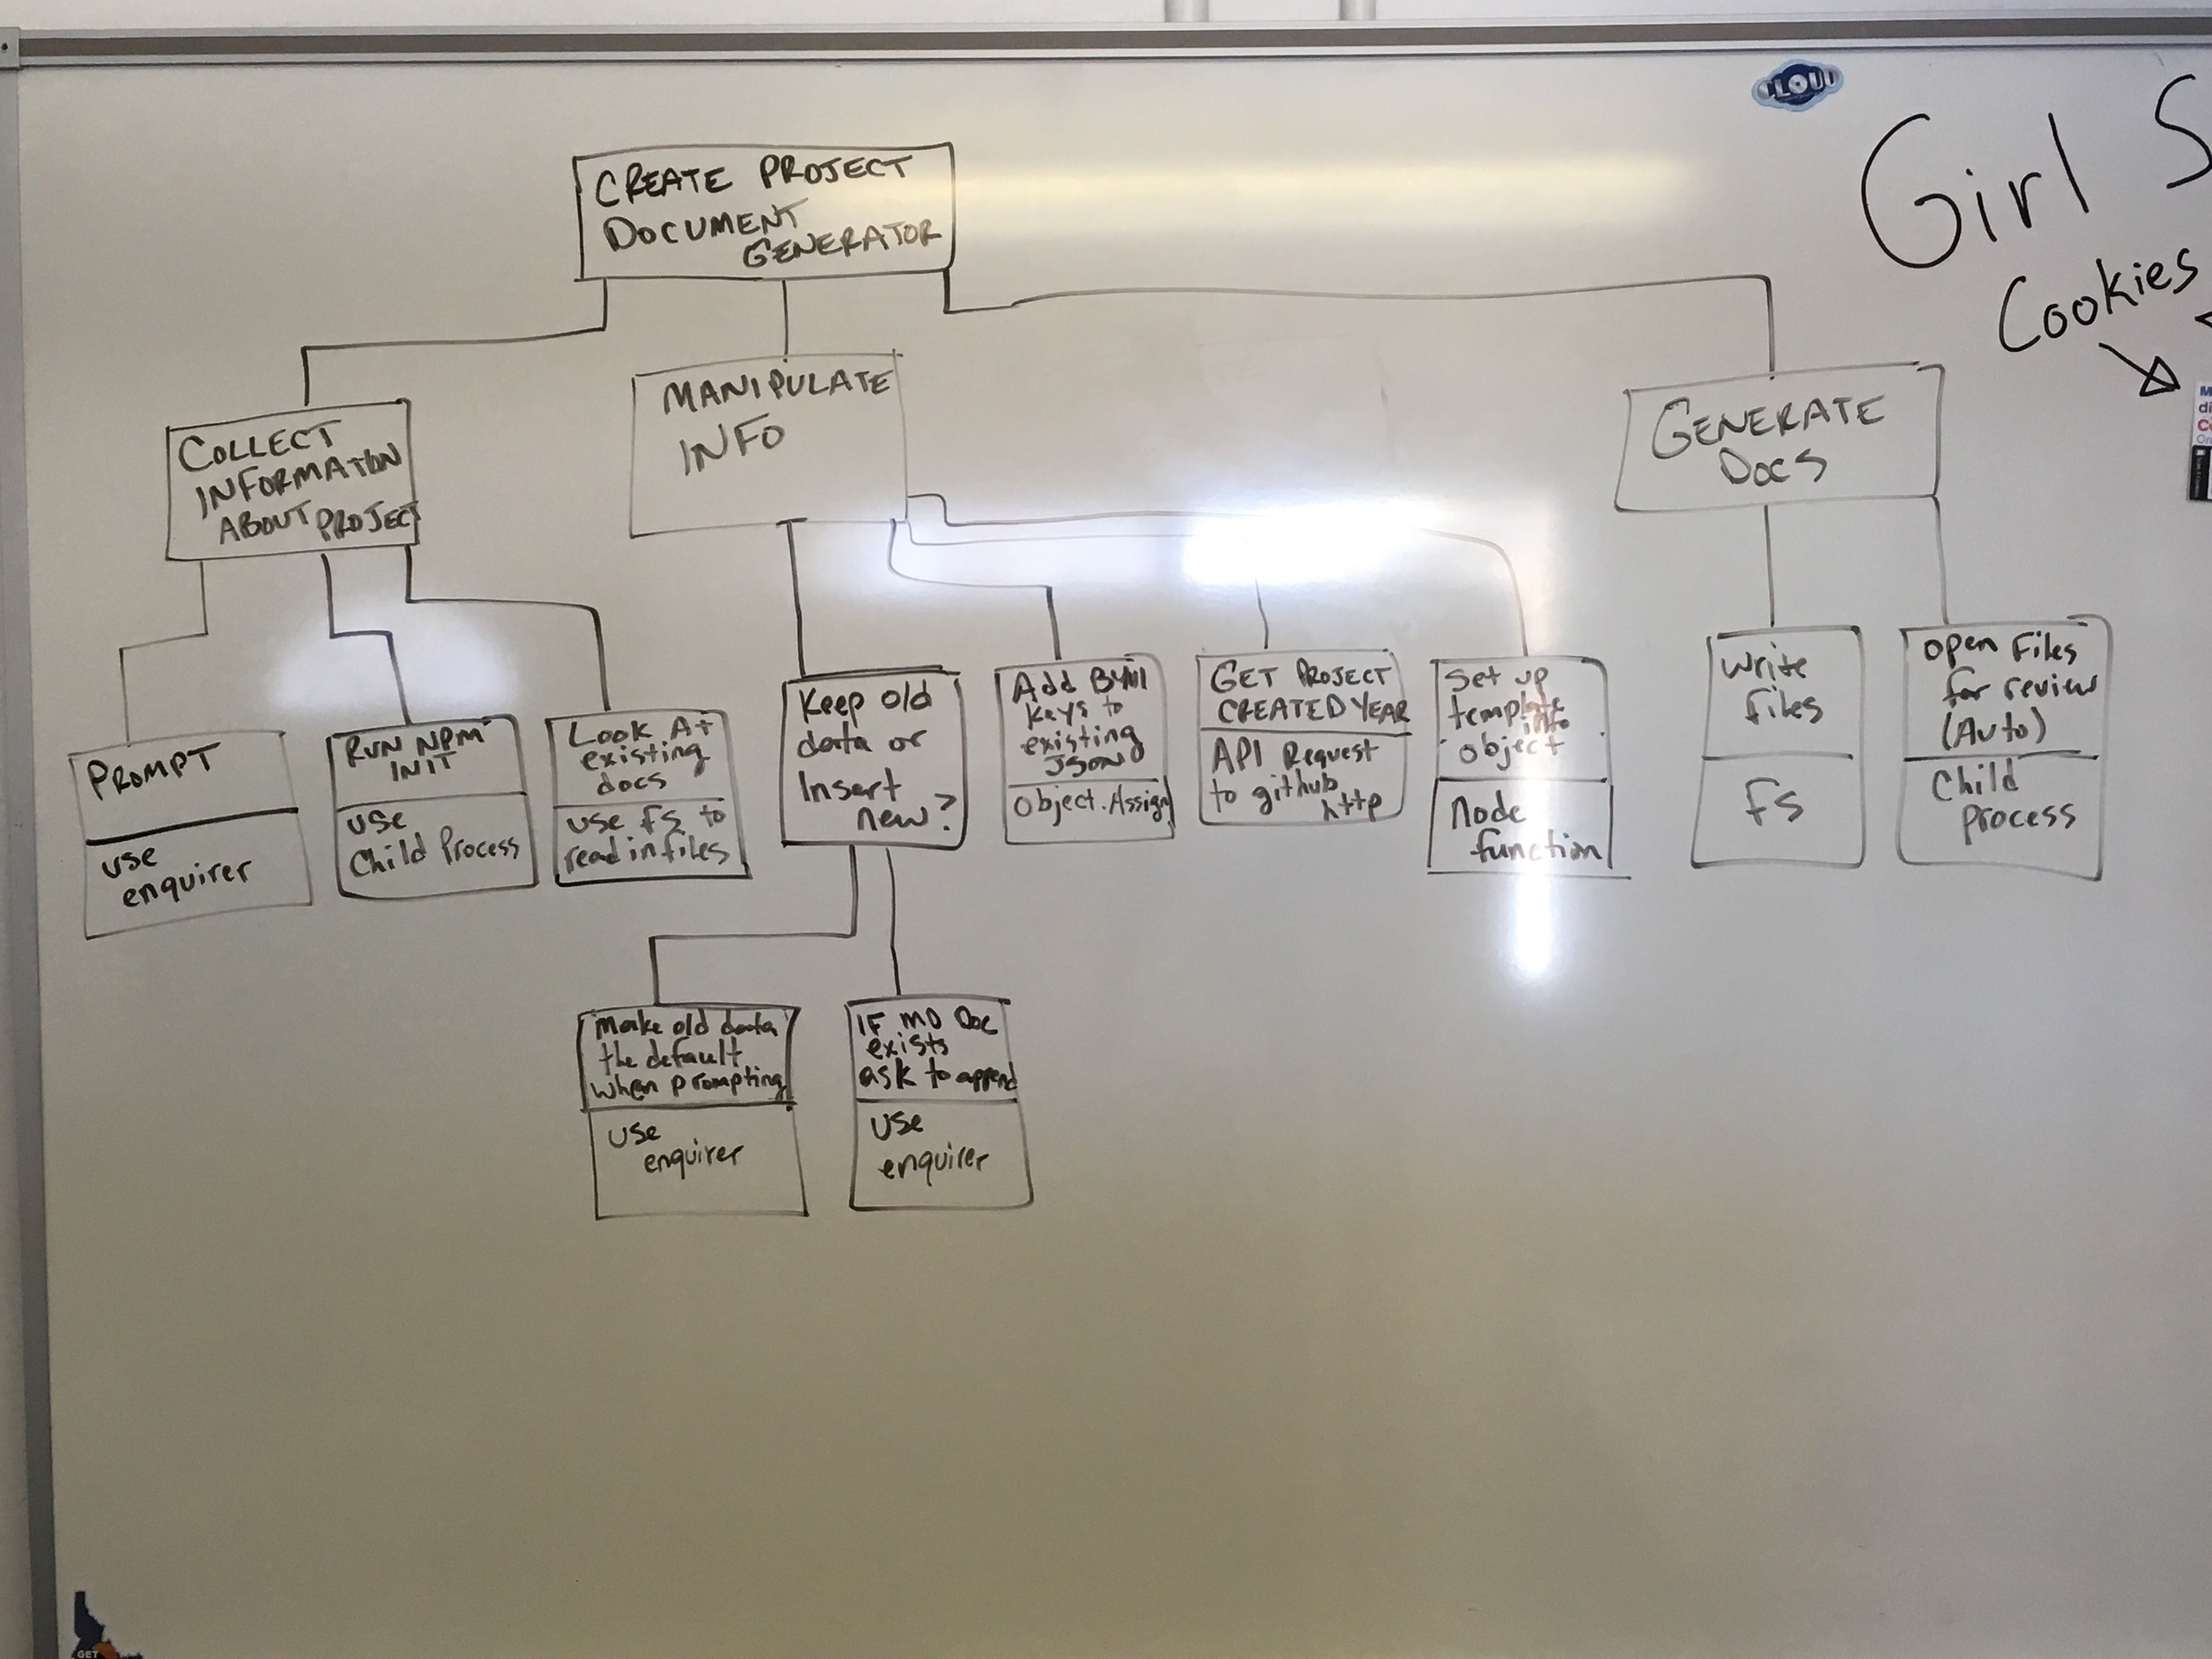 CREATE PROJECT
DOCUMENT
GENERATOR
Girl S
Cookies
COLLECT
INFORMATION
ABOUT PROJECT
MANIPULATE
INFO
GENERATE
DOCS
PROMPT
use
enquirer
RUN NPM
INIT
use
Child Process
Look At
existing
docs
use fs to
read in files
Keep old
data or
Insert
new?
Add
keys to
existing
JSON
Object.Assign
GET PROJECT
CREATED YEAR
API Request
to github
http
Set up
template
into
object
Node
function
Write
files
fs
Open Files
for review
(Auto)
Child
process
Make old data
the default
when prompting
use
enquirer
IF MD Doc
exists
ask to append
use
enquirer
GET